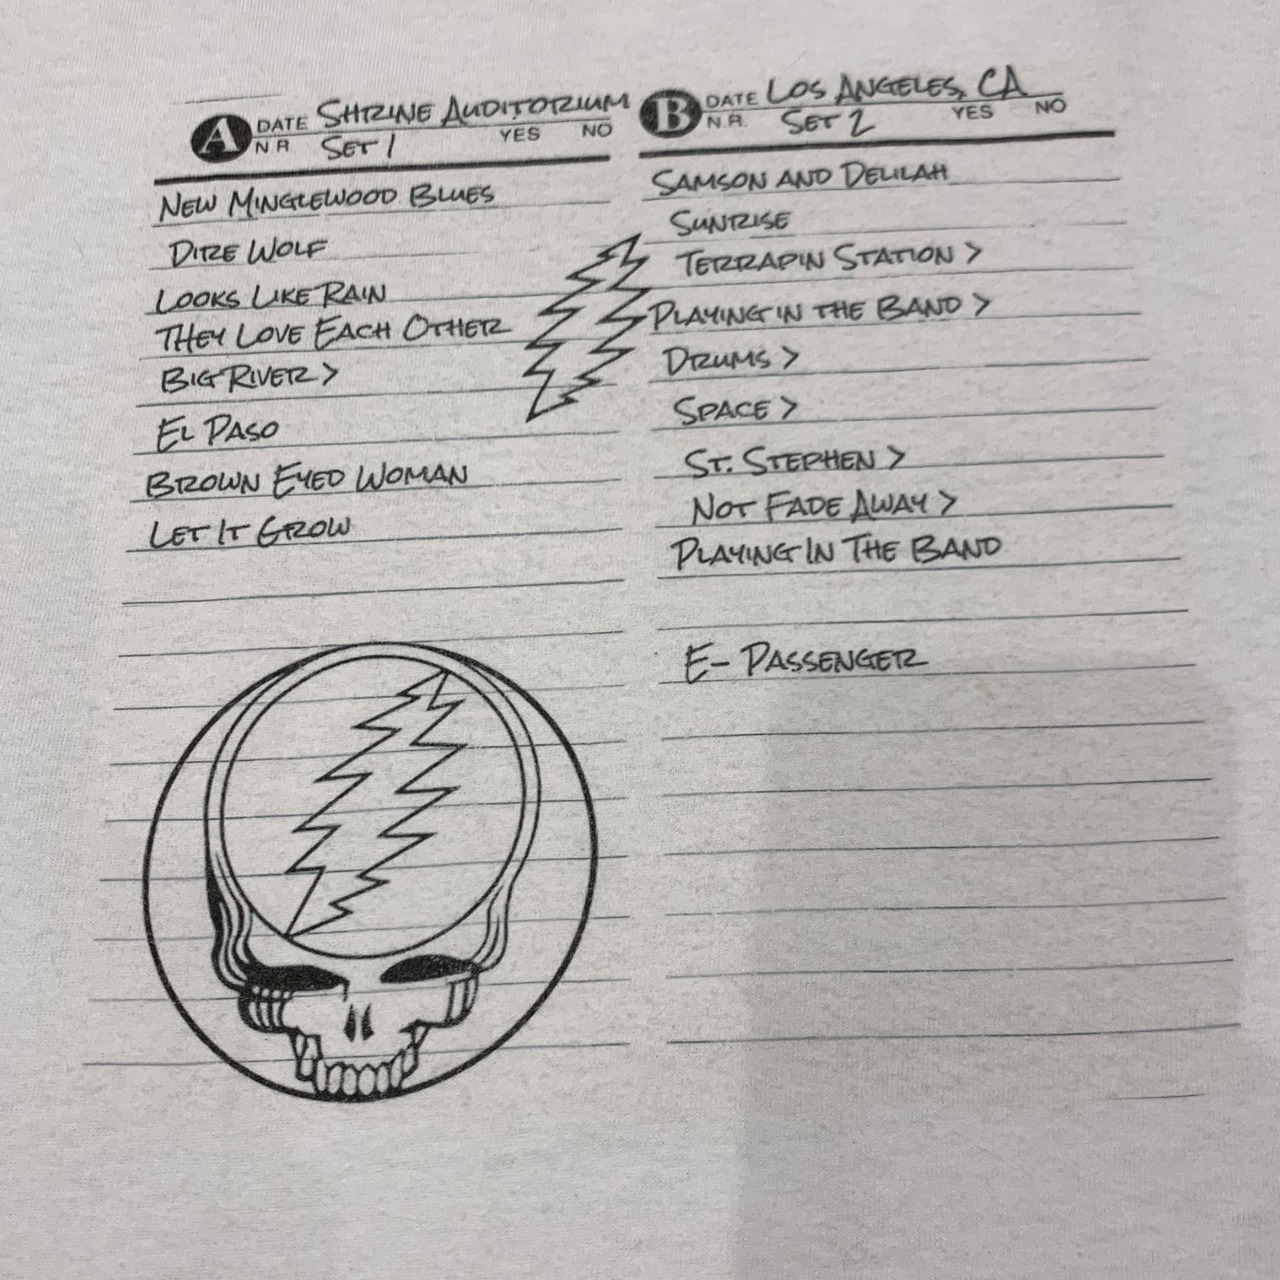 A DATE SHRINE AUDITORIUM
N.R. SET 1 YES NO
NEW MINGLEWOOD BLUES
DIRE WOLF
LOOKS LIKE RAIN
THEY LOVE EACH OTHER
BIG RIVER >
EL PASO
BROWN EYED WOMAN
LET IT GROW
B DATE LOS ANGELES, CA
N.R. SET 2 YES NO
SAMSON AND DELILAH
SUNRISE
TERRAPIN STATION >
PLAYING IN THE BAND >
DRUMS >
SPACE >
ST. STEPHEN >
NOT FADE AWAY >
PLAYING IN THE BAND
E- PASSENGER